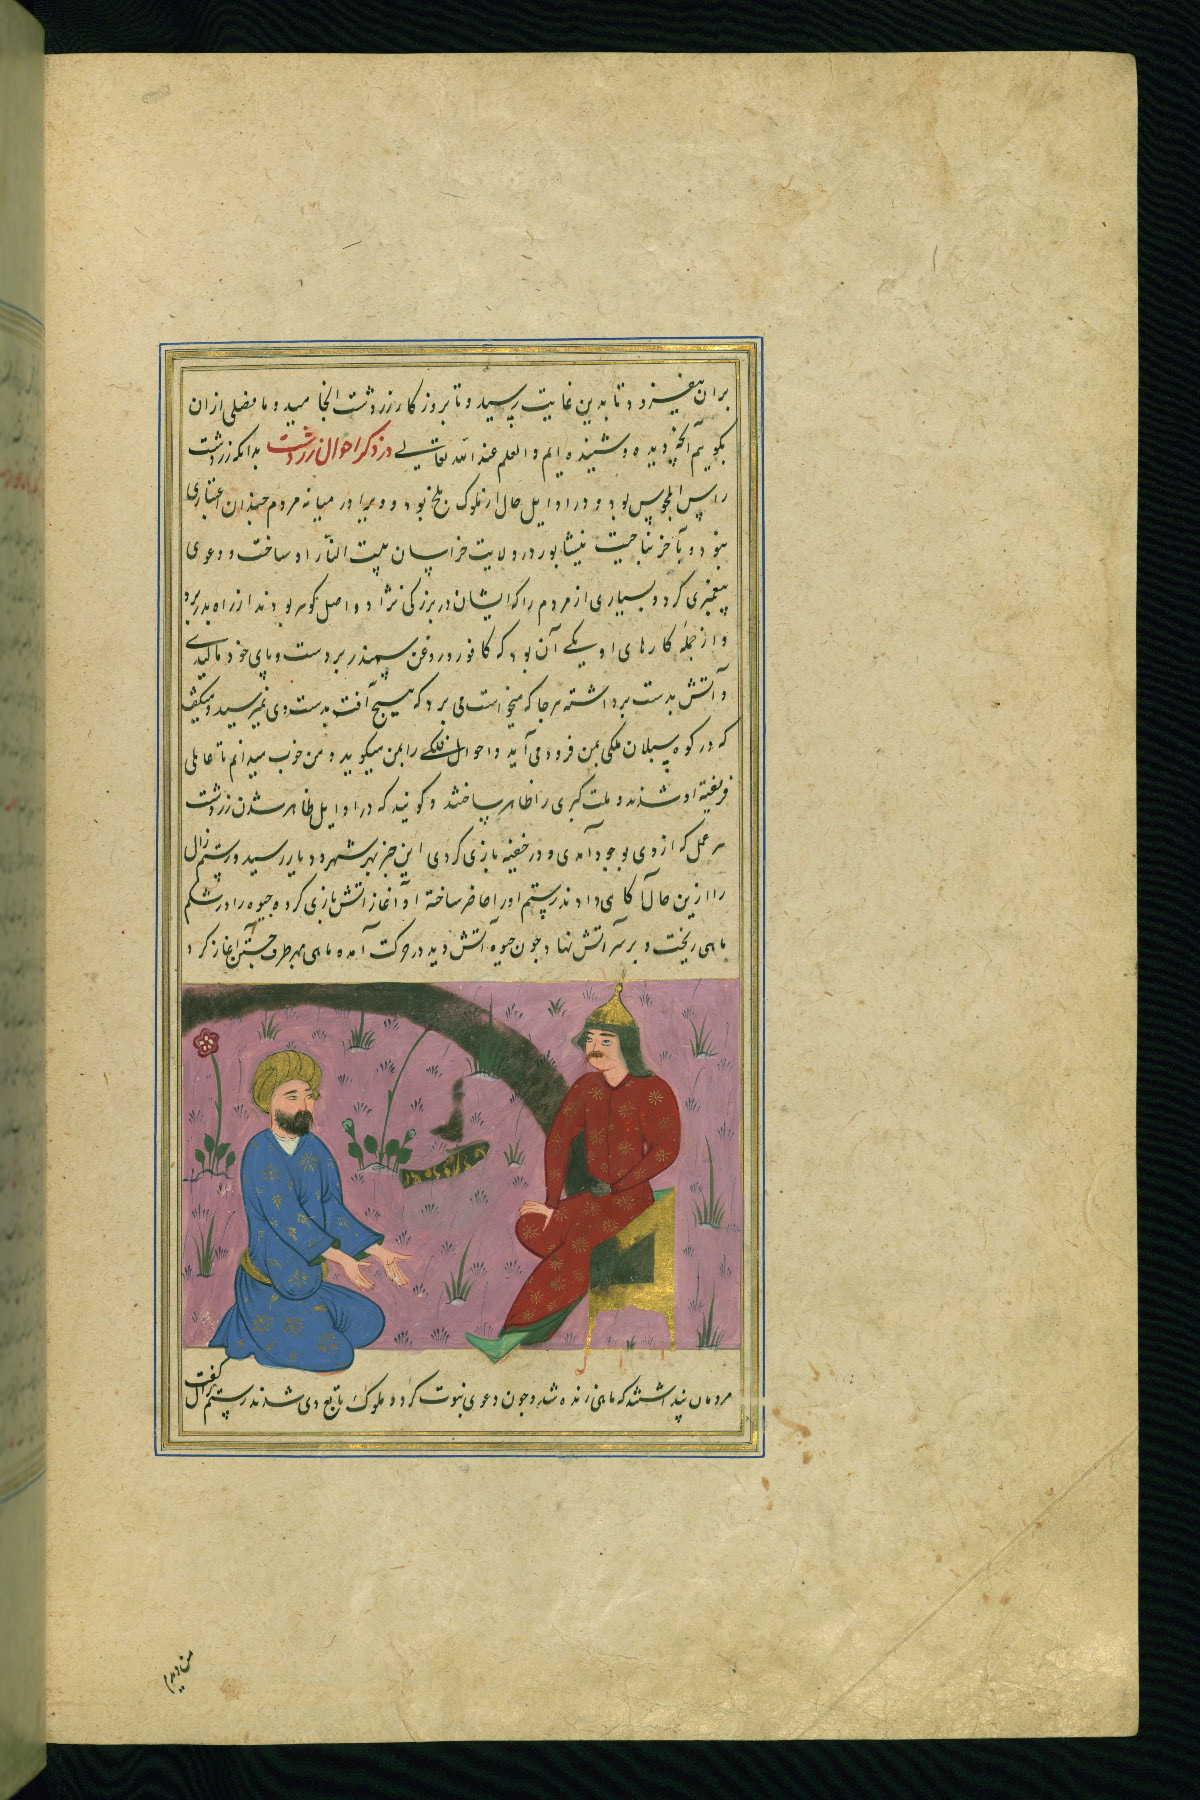 بران بیفزود و تا بدین غایت رسید و تا بروز کار زردشت انجامید و ما فصلی ازان
بکوییم آنچ دیده و شنیده ایم و العلم عند الله تعالی در ذکر احوال زردشت بدانکه زردشت
راس المجوس بود و در اوایل حال از ملوک بلخ بود و ویرا در میانه مردم چندان اعتباری
نبود و بآخر بناحیت نیشابور در ولایت خراسان بیت النار او ساخت و دعوی
پیغمبری کرد و بسیاری از مردم را که ایشان در بزرکی نژاد و اصل کوهر بودند از راه بدر برد
و از جمله کارهای او یکی آن بود که کافور و روغن سمندر بر دست و پای خود مالیدی
و آتش بدست برداشته هر جا که میخواست می برد که هیچ آفت بدست وی نمیرسید و میکفت
که در کوه سبلان ملکی بمن فرود می آید و احوال فلکی را بمن میکوید و من خوب میدانم تا عاملی
فریفته او شدند و ملت کبری را ظاهر ساختند و کویند که در اوایل ظاهر شدن زردشت
هر عمل که از وی بوجود آمدی و در خفیه بازی کردی این خبر بهر شهر و دیار رسید و رستم زال
را ازین حال آکاهی دادند رستم او را حاضر ساخته او آغاز آتش بازی کرده جیوه را در شکم
ماهی ریخت و بر سر آتش نهاد جون جیوه آتش دید در حرکت آمده ماهی بهر طرف جستن اغاز کرد
مردمان پنداشتند که ماهی زنده شد و جون دعوی نبوت کرد و ملوک تابع وی شدند رستم زال کفت
من دیدم